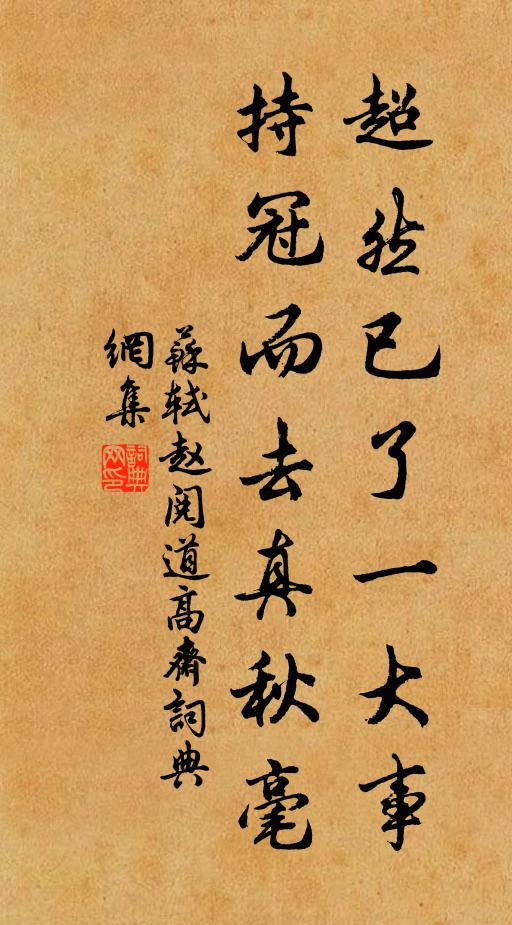 超然已了一大事
持冠而去真秋毫
蘇軾赵阅道高齋詞典
網集
詞典网印